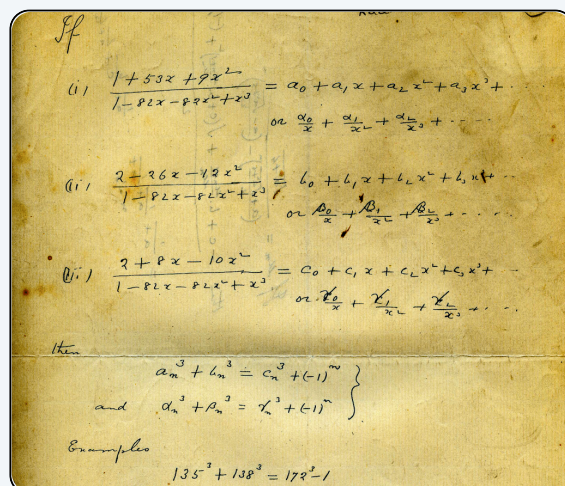 If
(i) (1 + 53x + 9x²)/(1 - 82x - 82x² + x³) = a₀ + a₁x + a₂x² + a₃x³ + ····
or α₀/x + α₁/x² + α₂/x³ + ·····
(ii) (2 - 26x - 12x²)/(1 - 82x - 82x² + x³) = b₀ + b₁x + b₂x² + b₃x³ + ····
or β₀/x + β₁/x² + β₂/x³ + ·····
(iii) (2 + 8x - 10x²)/(1 - 82x - 82x² + x³) = c₀ + c₁x + c₂x² + c₃x³ + ··
or γ₀/x + γ₁/x² + γ₂/x³ + ····
then
aₙ³ + bₙ³ = cₙ³ + (-1)ⁿ
and αₙ³ + βₙ³ = γₙ³ + (-1)ⁿ
Examples
135³ + 138³ = 172³ - 1